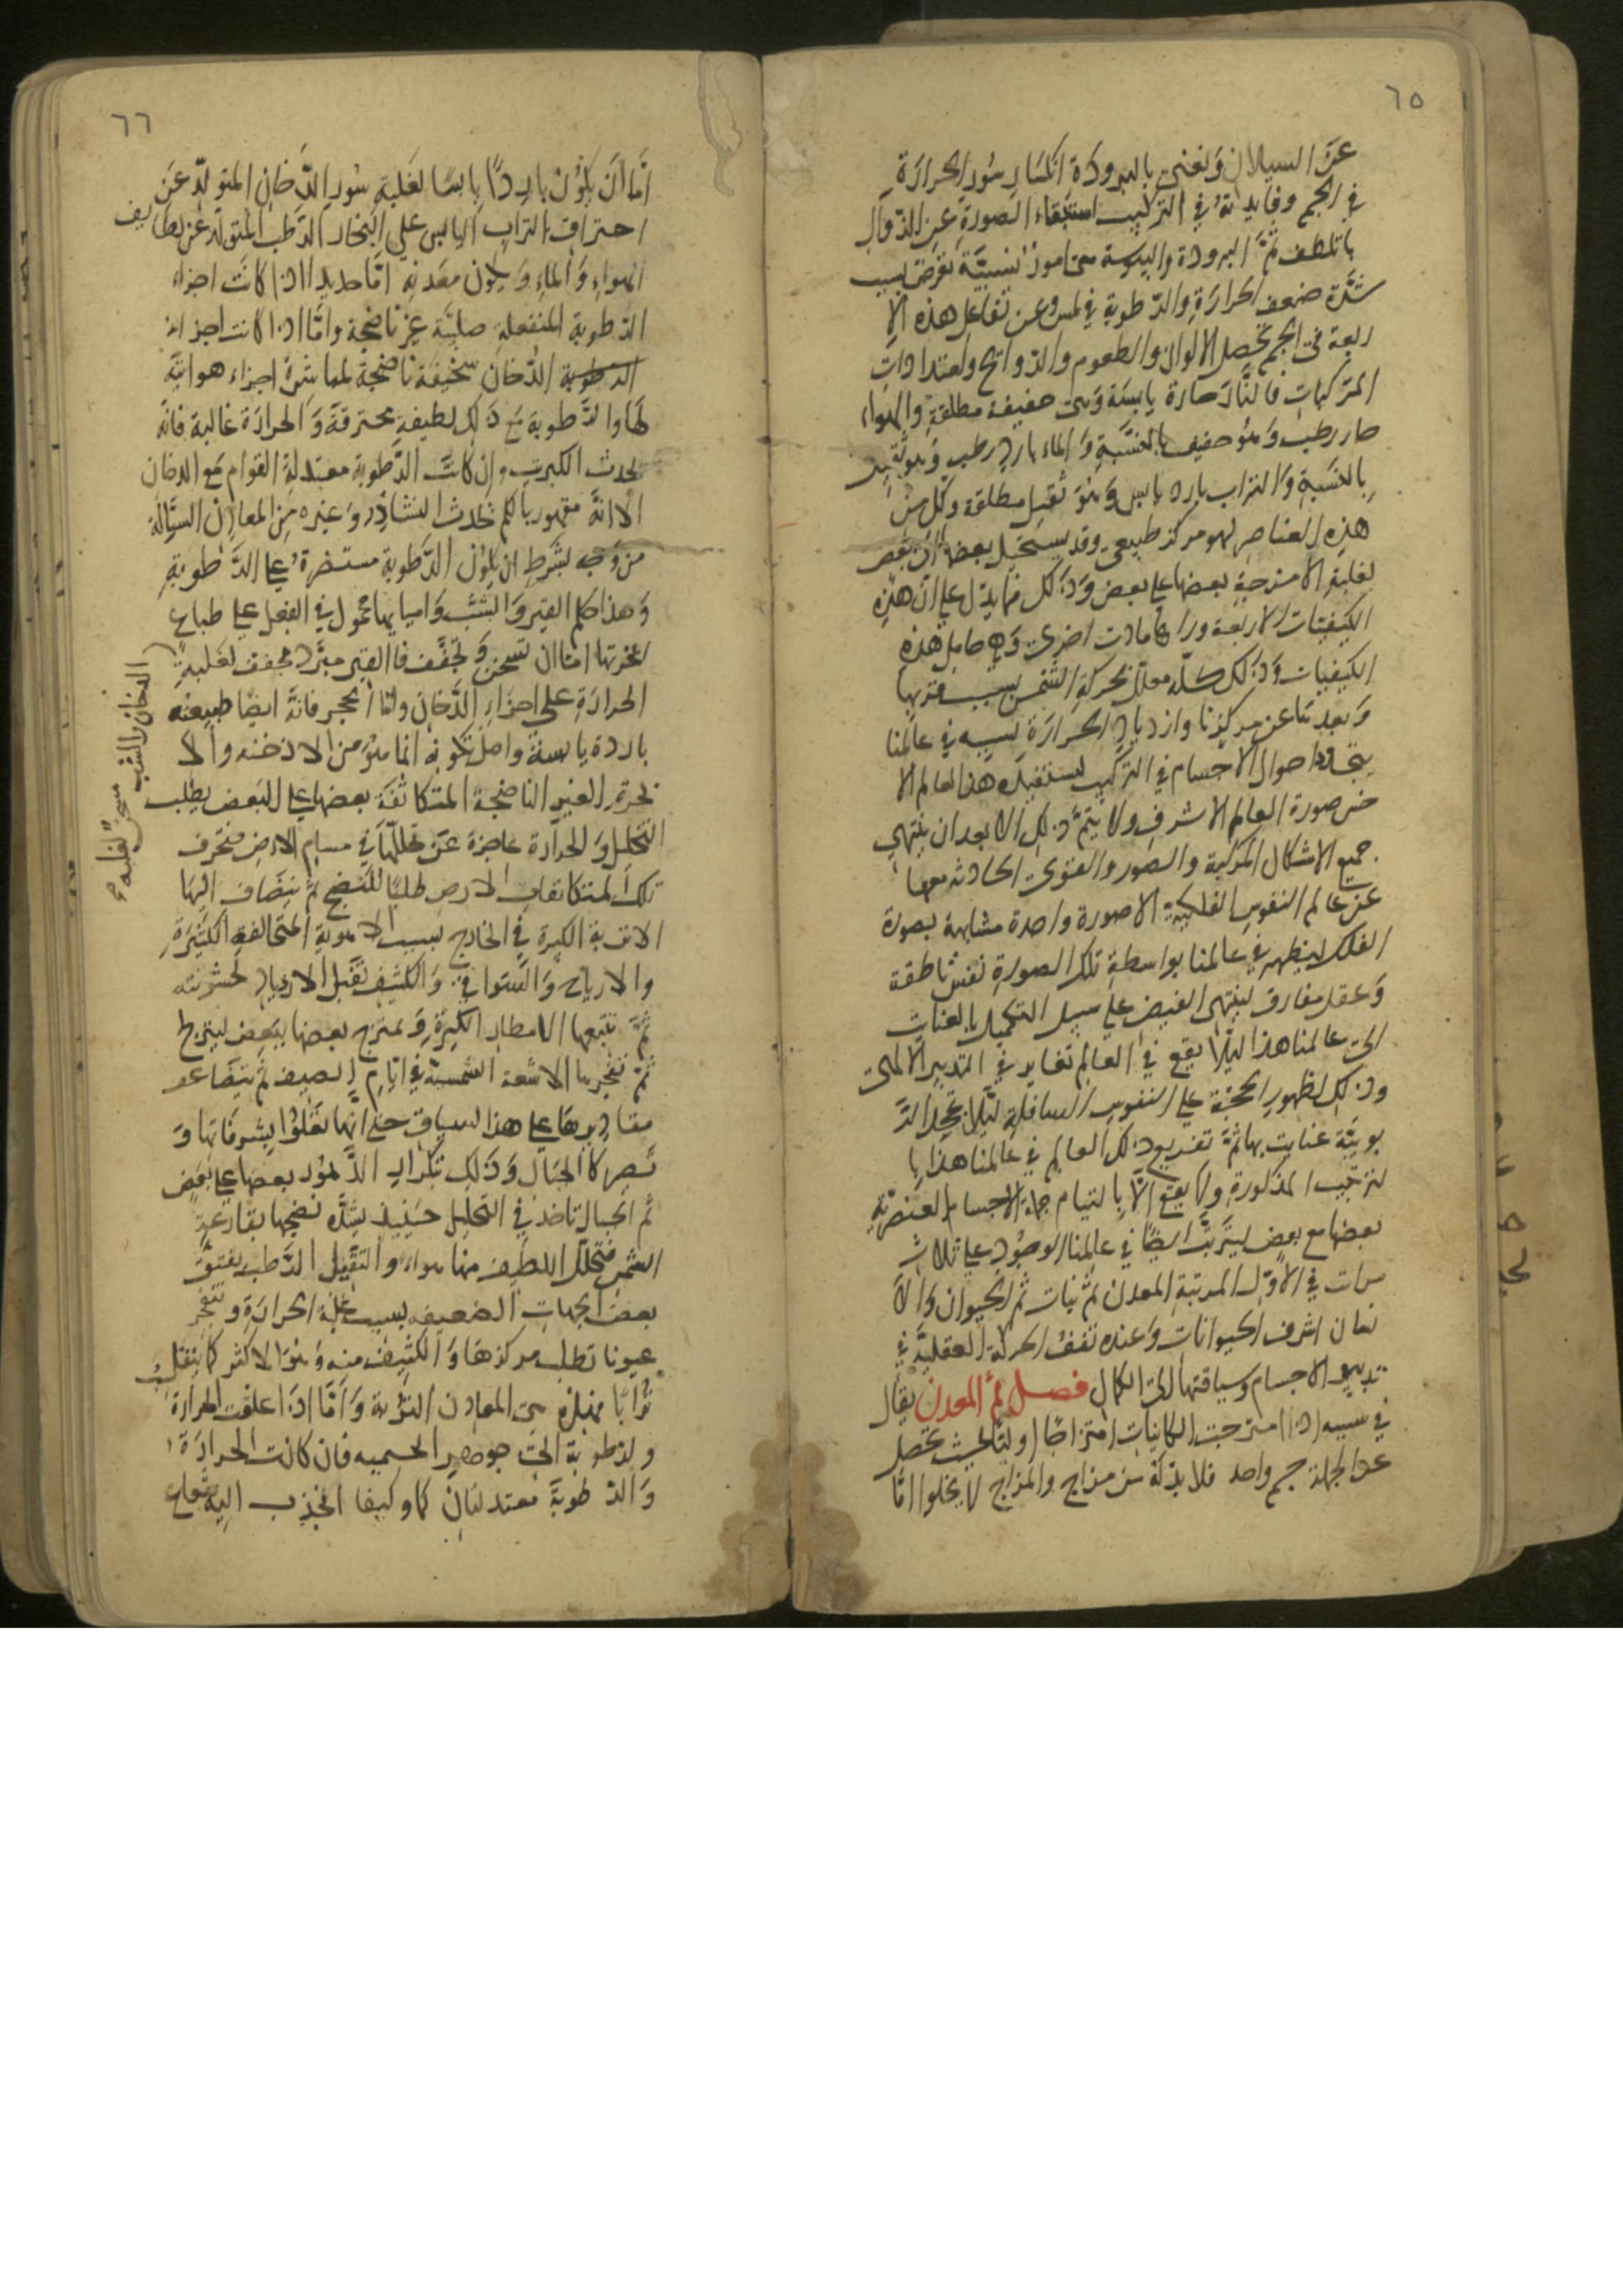 ٦٥
عن السيلان ونعني بالبرودة انكسار سُور الحرارة
في الجسم وفايدته في التركيب استبقاء الصورة عن الذوال
بالتلطف ثمَّ البرودة واليبوسة هي امور نسبيَّة تعرض بسبب
شدَّة ضعف الحرارة والدطوبة في لمس وعن تفاعل هذه الا
ربعة في الجسم تحصل الالوان والطعوم والدوائح واستعدادات
المركبات فالنَّار حارة يابسَة وَهي خفيفة مطلقة والهواء
حار رطب وَهُو خفيف بالنسَّبةِ وَالماء بارد رطب وَهو ثقيل
بِالنسَبةِ وَالتراب بارد يابس وَهُوَ ثقيل مطلقة وكل من
هذِه العناصر لهو مركز طبيعي وقد يستحيل بعضها الى بعض
لغلبة الامزجةِ بعضها علي بعض وَذلكَ مما يدل علي ان هذِه
الكيفيَّات الاربعة وراها مادت اخرى وَهي حامل هذه
الكيفيات وَذلك كلّه معلل بحركة الشمس بسبب قربها
وَبعدها عن مركزنا وازدياد الحرارَة بسببه في عالمنا
يتجددا حوال الاجسام في التركيب ليستفيد هذا العالم الا
خس صورة العالم الاشرف ولا يتمَّ ذلك الا بعد ان ينتهي
جميع الاشكال المركبة والصور والقوى الحادثه معها
عن عالم النفوس الفلكيَّة الا صورة واحدة مشابهة بصورة
الفلك ليظهر في عالمنا بواسطةِ تلك الصورة نفس ناطقة
وَعقل مفارق لينتهي الفيض علي سبيل التكميل بالعنايت
الى عالمنا هذا ليلا يقع في العالم تغاير في التدبير الالهى
وذلك لظهور الحجّة علي النفوس السافلةِ ليَّلا تجحد الدَّ
بوبيَّة عنايت بها ثمَّ تفريع ذلك العالم في عالمنا هذا با
لترتيب المذكورة ولا يقع الَّا بِالتيام جملة الاجسام العنصريَّه
بعضها مع بعض ليترتَّب ايضًا في عالمنا الوجُود علي ثلاث
مرات في الاوَّل المرتبةِ المعدن ثمَّ نبات ثم الحيوان وَالا
نسان اشرف الحيوانات وَعنده تقف الحركة العقليَّة في
تدبيير الاجسام وسياقتها الى الكمال فصل ثمَّ المعدن يقال
في سببه اذا امتزجت الكائنيات امتزاجًا اوليًّا بحيث تحصل
عن الجملة جسم واحد فلا بد له من مزاج والمزاج لا يخلوا امّا
٦٦
امَّا ان يكوُن باردًا يابسًا لغلبةِ سُور الدَّخان المتولّد عن
احتراق التراب اليابس علي البخار الدَّطب المتولَّد عن لطايف
الهواءِ وَالماءِ وَيكوُن معَدنِه امَّا حديدا اذا كانَت اجزاء
الدطوبة المنفعلةِ صلبيَّة غير ناضجة وامَّا اذا كانت اجزاء
الدطوبة الدُّخان سخيفة ناضجة لمباشرة اجزاء هوائيَّة
لهَا والدَّطوبة مَع ذلك لطيفةِ محترقة وَالحرارَة غالبة فانَّه
يحدث الكبريت وان كانَت الدَّطوبة معتدلة القوام مَع الدخان
الا انَّه مقهور بالكم يحدث النشاذِر وَغيره مِن المعادِن السيَّالة
من وَجه بشَرط ان يكوُن الدَّطوبة مستضرة علي الدَّطوبةِ
وَهذا كلم القير وَالشَّبَّ وَامياهما محمول في الفعل علي طباع
اخرتها امّا ان تسخن وَتجفَّف فا القير مبَرَّد مجفف لغلبةِ
الحرارَةِ علي اجزاءِ الدَّخان وامّا الحجر فانَّه ايضًا طبيعته
باردة يابسة واصل تكونه انما هُوَ من الادخنه وَالا
بخرة الغير الناضجة المتكاثفة بعضها علي البَعض يطلب
التحلل وَالحرارَة عاجزة عَن تحللّها في مسام الارض فتحرف
تلك المتكاثفات الارض طلبًا للنضج ثم يَنضاف اليها
الاتربة الكثيرة في الخارج بسبب الاهوية المتخالفةِ الكثيرةِ
والارياح وَالسَّوافي وَالكثيف تقبل الازدياد لخشونته
ثمَّ تتبعها الامطار الكثيرَةِ وَيمتزج بعضها ببَعض ليتزج
ثمّ تفجر بها الاشعة الشمسيَّة في ايَّام الصيف ثم يتضَاعف
مقاديرهَا علي هذا السياق حتى انّها تَعلوُا بشرفاتها وَ
تَصير كا الجبال وَذلك بتكرار الدُّهوُر بعضها علي بَعَض
ثم الجبال تاخذ في التحليل حينيذ بشدَّه نضجها بقارعَة
الشمس فتحلل اللطيف منها هواء والثقيل الدَّطب يفتق
بعض الجهات الضعيفه بسبب غلبة الحرارَةِ وتنفجر
عيونا تطلب مركزهَا وَالكثيف منه وَهُوَ الاكثر كا ينقلبُ
تُرابًا فهذه هى المعادن التوُّبة وَامَّا اذا علقت الحرارَة
والدطوبة الى جوهر الجسميه فان كانت الحرارَة
وَالدطوبَة معتدلتَان كما وكيفا انجذب اليه شعاع
الدخان والشب مسخن لغلبه صح